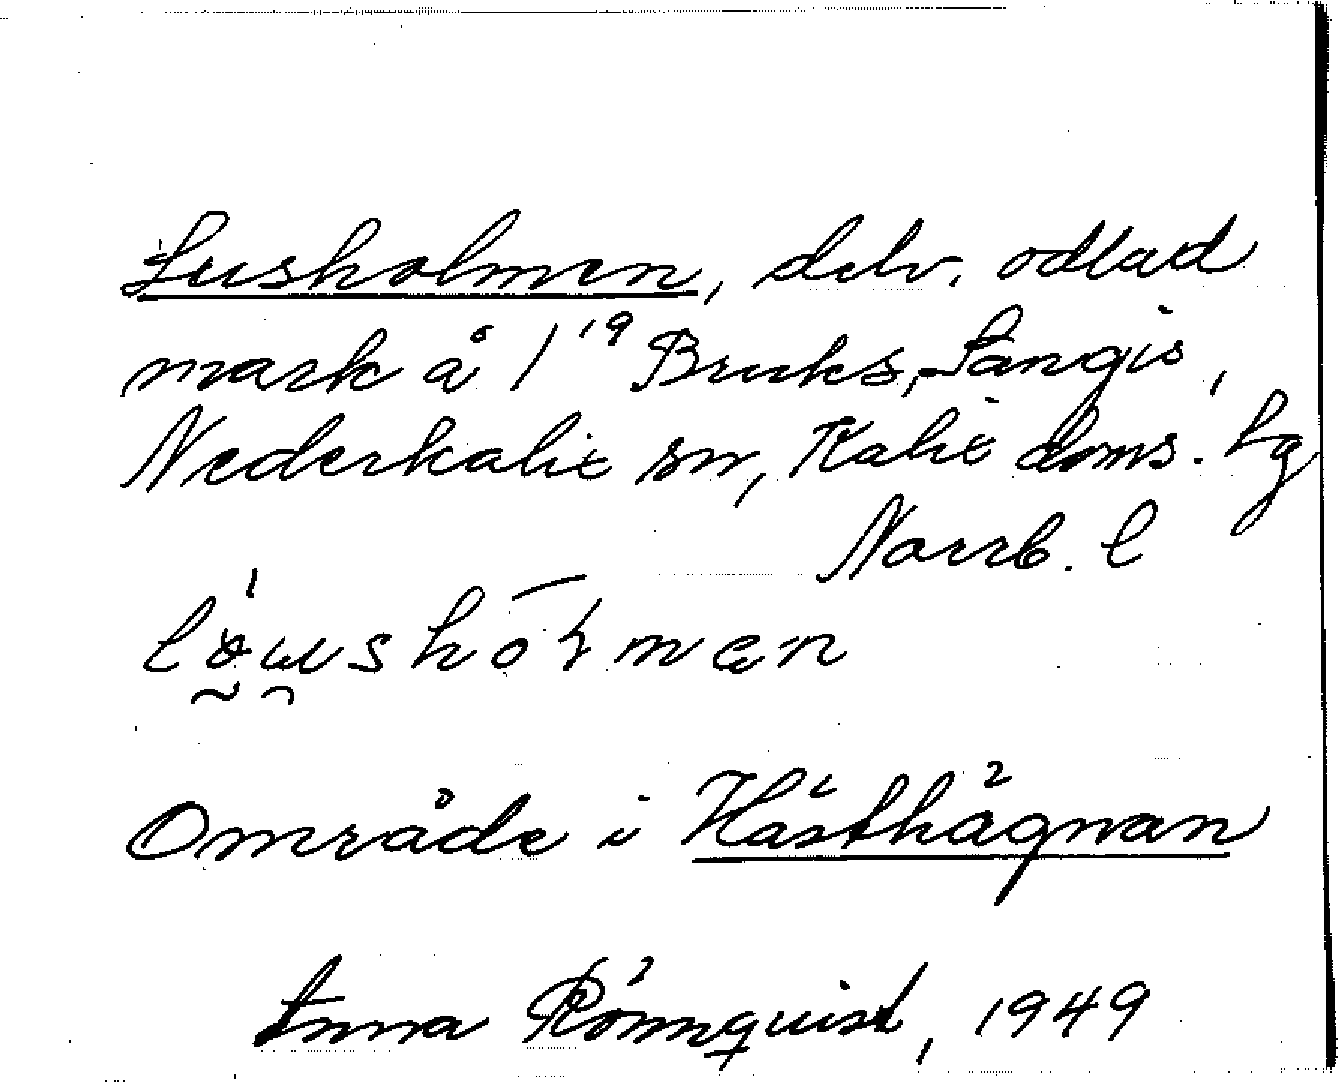 Lusholmen, delv. odlad
mark å 1¹⁹ Bruks, Sangis,
Nederkalix sn, Kalix doms. lg
Norrb. l
Område i Hästhägnan
Anna Rönnquist, 1949